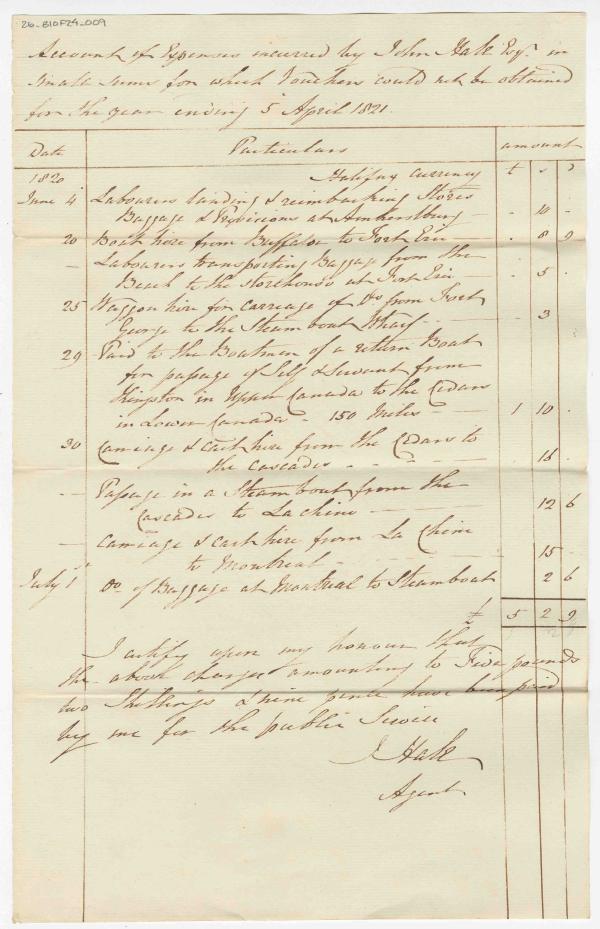 26-B10F24-009
Account of Expenses incurred by John Hale Esqr. in
small sums for which Vouchers could not be obtained
for the year ending 5 April 1821.
Date Particulars amount
1820 Halifax currency £ s D
June 4 Labourers landing & reimbarking Stores
Baggage & Provisions at Amhersburg - . 10 -
20 Boat hire from Buffaloe to Fort Erie - . 8 9
- Labourers transporting Baggage from the
Beach to the storehouse at Fort Erie - . 5 .
25 Waggon hire for carriage of Do. from Fort
George to the Steam boat Wharf - . 3
29 Paid to the Boatmen of a return Boat
for passage of Self & servant from
Kingston in Upper Canada to the Cedars
in Lower Canada - 150 miles - 1 10 .
30 Carriage & cart hire from the Cedars to
the cascades - 16 .
- Passage in a Steam boat from the
Cascades to La chine - 12 6
- Carriage & cart hire from La Chine
to Montreal - 15 -
July 1st Do. of Baggage at Montreal to Steamboat 2 6
£ 5 2 9
I certify upon my honour that
the above charges amounting to Five pounds
two Shillings & nine pence have been paid
by me for the public Service
J Hale
Agent